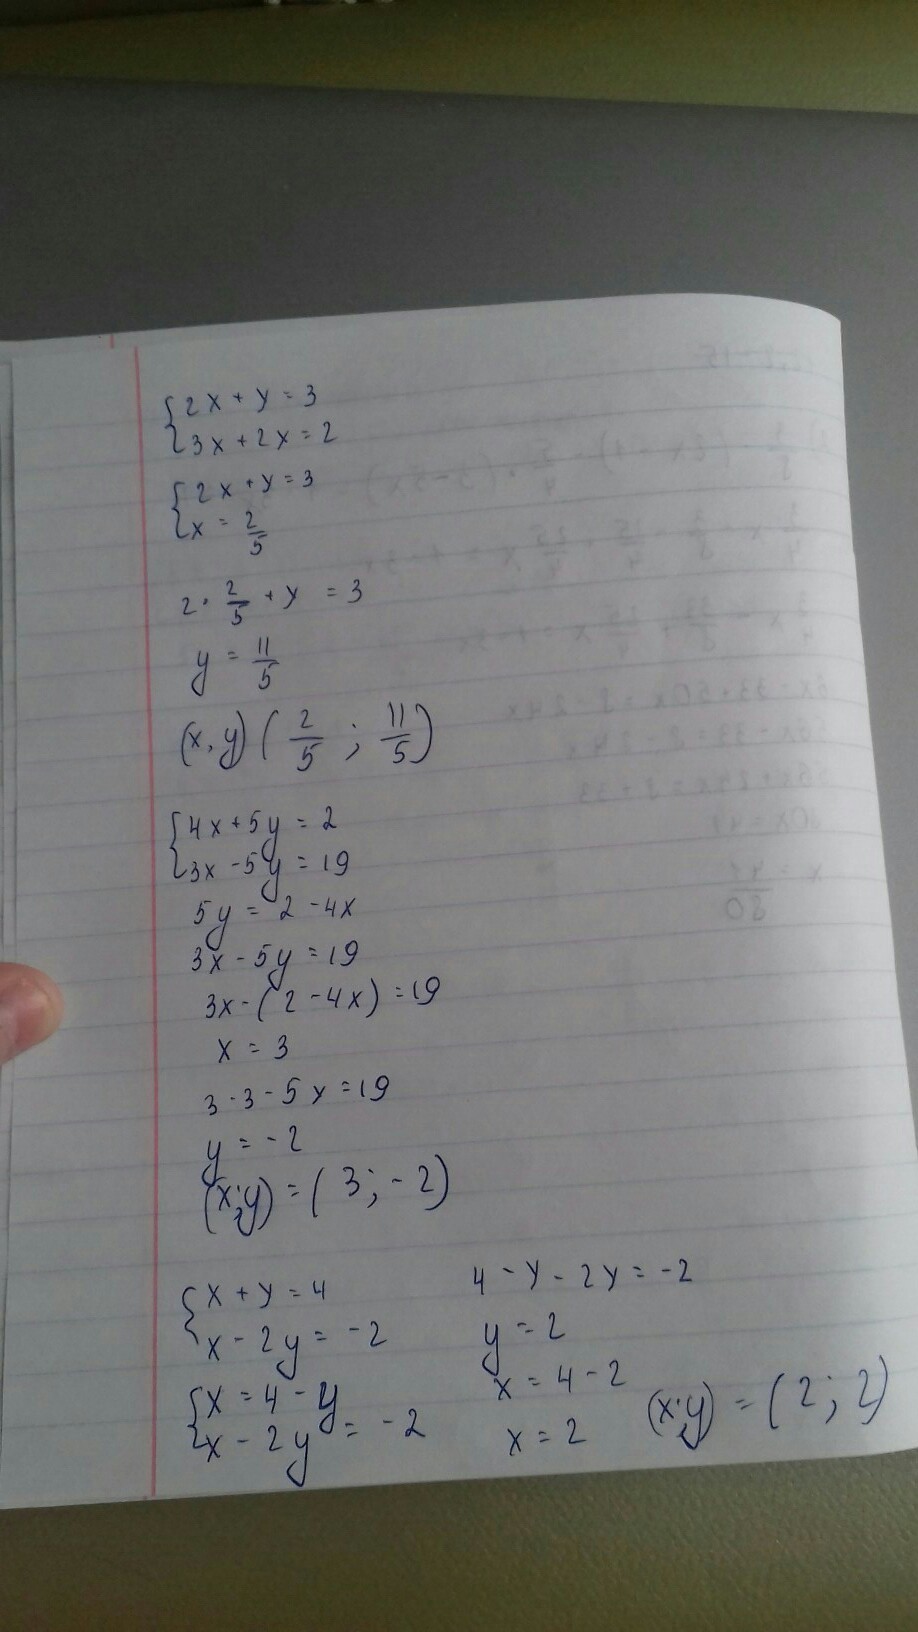 {2x + y = 3
3x + 2x = 2
{2x + y = 3
x = 2/5
2 · 2/5 + y = 3
y = 11/5
(x, y) (2/5 ; 11/5)
{4x + 5y = 2
3x - 5y = 19
5y = 2 - 4x
3x - 5y = 19
3x - (2 - 4x) = 19
x = 3
3 · 3 - 5x = 19
y = -2
(x;y) = (3; -2)
{x + y = 4
x - 2y = -2
{x = 4 - y
x - 2y = -2
4 - y - 2y = -2
y = 2
x = 4 - 2
x = 2
(x;y) = (2; 2)